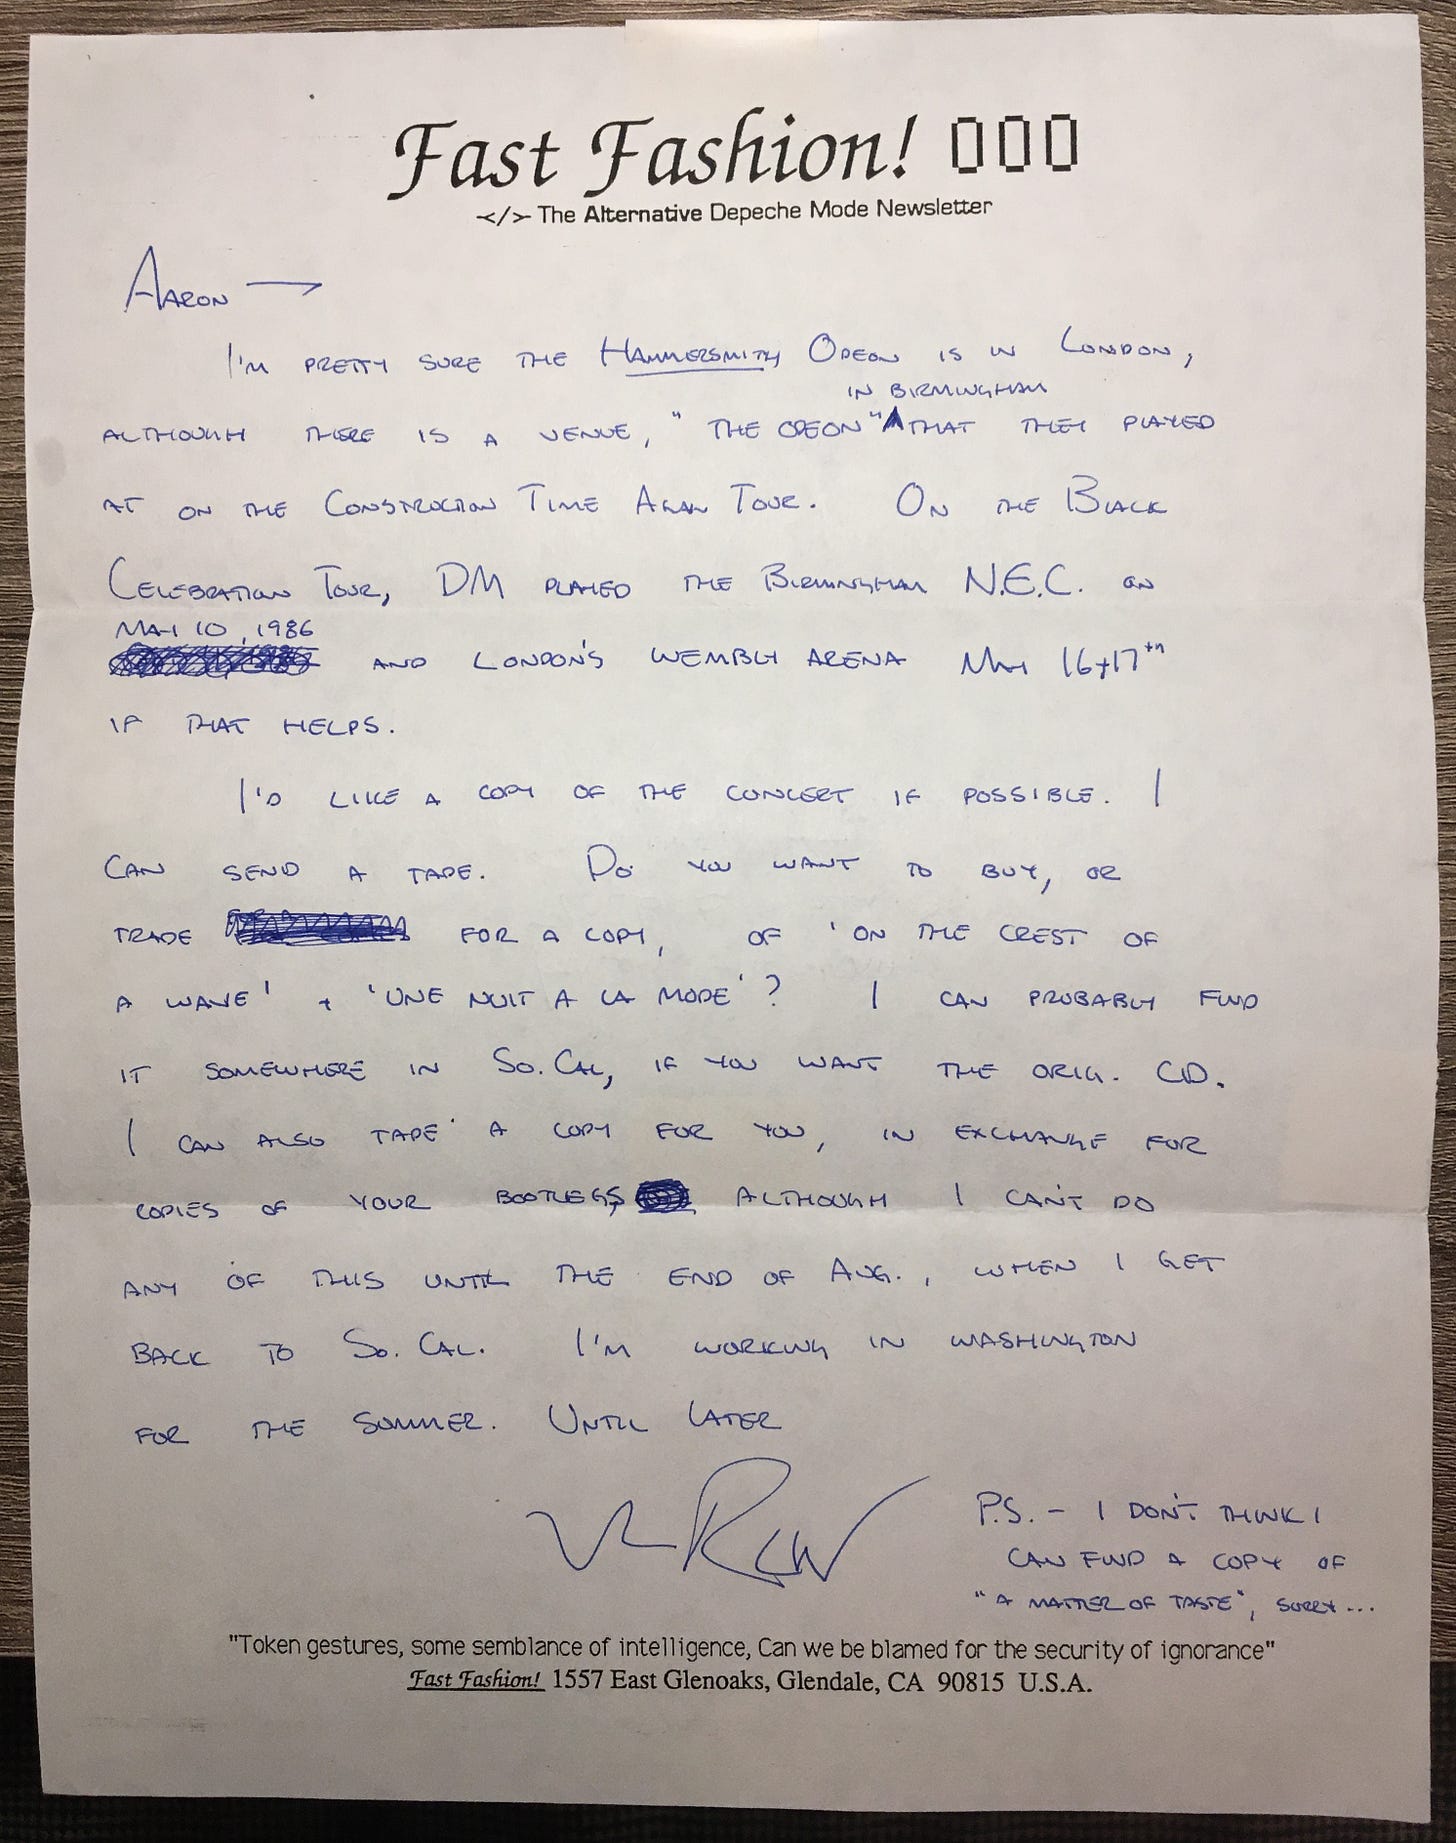 Fast Fashion!
-</>- The Alternative Depeche Mode Newsletter
AARON —
I'M PRETTY SURE THE HAMMERSMITH ODEON IS IN LONDON,
IN BIRMINGHAM
ALTHOUGH THERE IS A VENUE, "THE ODEON" THAT THEY PLAYED
AT ON THE CONSTRUCTION TIME AGAIN TOUR. ON THE BLACK
CELEBRATION TOUR, DM PLAYED THE BIRMINGHAM N.E.C. ON
MAY 10, 1986
AND LONDON'S WEMBLY ARENA MAY 16+17TH
IF THAT HELPS.
I'D LIKE A COPY OF THE CONCERT IF POSSIBLE. I
CAN SEND A TAPE. DO YOU WANT TO BUY, OR
TRADE FOR A COPY, OF 'ON THE CREST OF
A WAVE' + 'UNE NUIT A LA MODE'? I CAN PROBABLY FIND
IT SOMEWHERE IN SO. CAL, IF YOU WANT THE ORIG. CD.
I CAN ALSO TAPE A COPY FOR YOU, IN EXCHANGE FOR
COPIES OF YOUR BOOTLEGS, ALTHOUGH I CAN'T DO
ANY OF THIS UNTIL THE END OF AUG., WHEN I GET
BACK TO SO. CAL. I'M WORKING IN WASHINGTON
FOR THE SUMMER. UNTIL LATER
P.S. - I DON'T THINK I
CAN FIND A COPY OF
"A MATTER OF TASTE", SORRY...
"Token gestures, some semblance of intelligence, Can we be blamed for the security of ignorance"
Fast Fashion! 1557 East Glenoaks, Glendale, CA 90815 U.S.A.